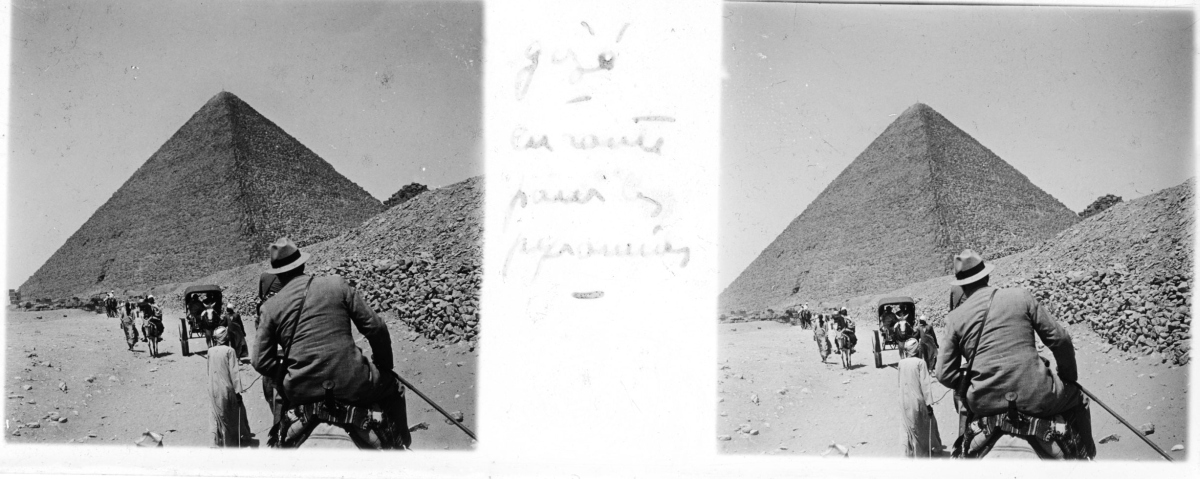 gizé
en route
pour les
pyramides